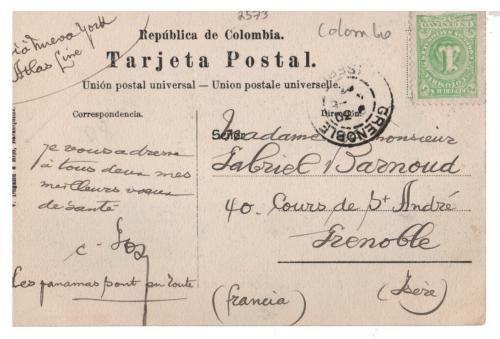 2573
Colombo
via Nueva York
Atlas Line
República de Colombia.
Tarjeta Postal.
Unión postal universal — Union postale universelle.
Correspondencia.
Dirección.
GRENOBLE
Señor
Madame monsieur
Gabriel Barnoud
40. Cours de St André
Grenoble
(Isère)
(francia)
je vous adresse
à tous deux mes
meilleurs voeux
de santé
Les panamas sont en route